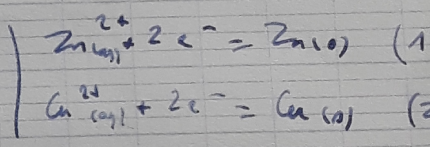 Zn²⁺(aq) + 2e⁻ = Zn(s) (1
Cu²⁺(aq) + 2e⁻ = Cu(s) (2